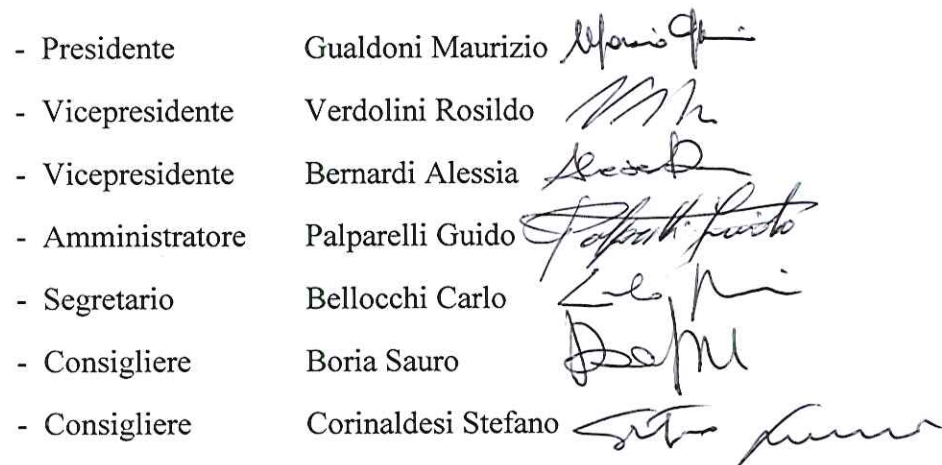 - Presidente Gualdoni Maurizio
- Vicepresidente Verdolini Rosildo
- Vicepresidente Bernardi Alessia
- Amministratore Palparelli Guido Palparelli Guido
- Segretario Bellocchi Carlo
- Consigliere Boria Sauro
- Consigliere Corinaldesi Stefano